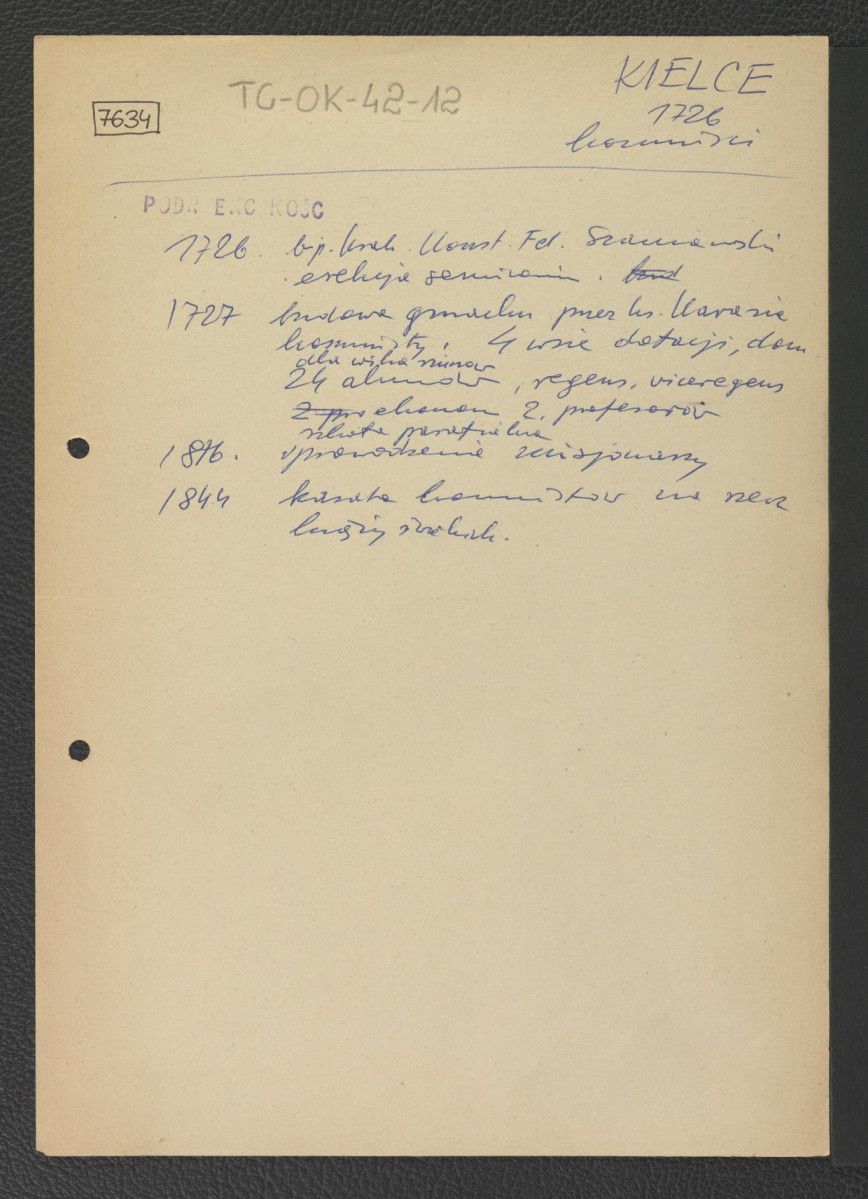 7634
TG-OK-42-12
KIELCE
1726
komuniści
PODR ENC KOŚC
1726 bp. krak. Konst. Fel. Szaniawski
erekcja seminarium.
1727 budowa gmachu przez ks.
komunisty, 4 wsie dotacji, dom
dla wikariuszów
24 alumnów, regens, viceregens
ekonom 2. profesorów
szkoła parafialna
wprowadzenie misjonarzy
1844 kasata komunistów na rzecz
księży świeckich.